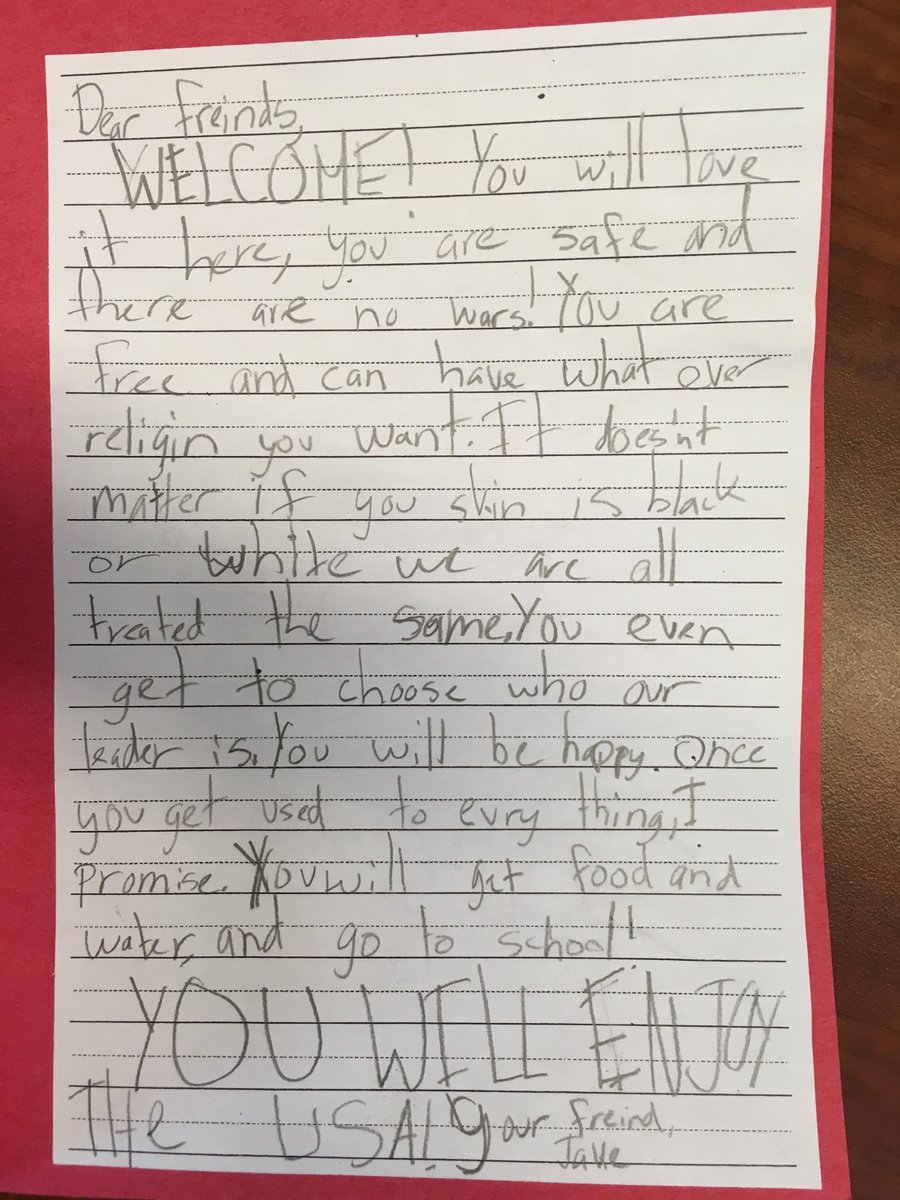 Dear freinds,
WELCOME! You will love
it here, you are safe and
there are no wars! You are
free and can have what over
religin you want. It does'nt
matter if you skin is black
or white we are all
treated the same, You even
get to choose who our
leader is. You will be happy. Once
you get used to evry thing, I
promise. You will get food and
water, and go to school!
YOU WILL ENJOY
THe USA! your freind,
Jake